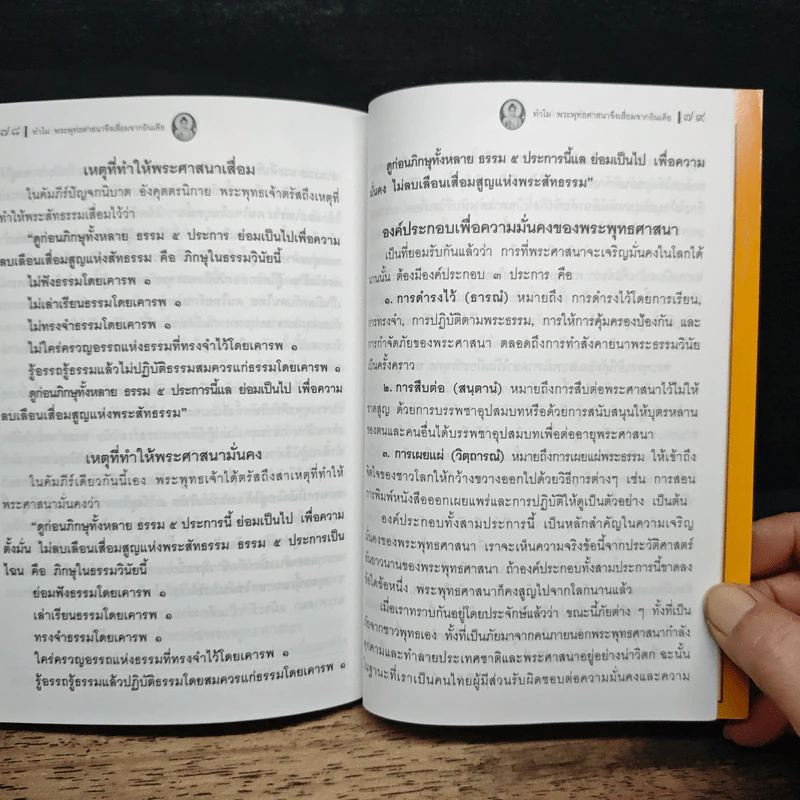 ๗๘ ทำไม พระพุทธศาสนาจึงเสื่อมจากอินเดีย
เหตุที่ทำให้พระศาสนาเสื่อม
ในคัมภีร์ปัญจกนิบาต อังคุตตรนิกาย พระพุทธเจ้าตรัสถึงเหตุที่
ทำให้พระสัทธรรมเสื่อมไว้ว่า
“ดูก่อนภิกษุทั้งหลาย ธรรม ๕ ประการ ย่อมเป็นไปเพื่อความ
ลบเลือนเสื่อมสูญแห่งสัทธรรม คือ ภิกษุในธรรมวินัยนี้
ไม่ฟังธรรมโดยเคารพ ๑
ไม่เล่าเรียนธรรมโดยเคารพ ๑
ไม่ทรงจำธรรมโดยเคารพ ๑
ไม่ใคร่ครวญอรรถแห่งธรรมที่ทรงจำไว้โดยเคารพ ๑
รู้อรรถรู้ธรรมแล้วไม่ปฏิบัติธรรมสมควรแก่ธรรมโดยเคารพ ๑
ดูก่อนภิกษุทั้งหลาย ธรรม ๕ ประการนี้แล ย่อมเป็นไป เพื่อความ
ลบเลือนเสื่อมสูญแห่งพระสัทธรรม”
เหตุที่ทำให้พระศาสนามั่นคง
ในคัมภีร์เดียวกันนี้เอง พระพุทธเจ้าได้ตรัสถึงสาเหตุที่ทำให้
พระศาสนามั่นคงว่า
“ดูก่อนภิกษุทั้งหลาย ธรรม ๕ ประการนี้ ย่อมเป็นไป เพื่อความ
ตั้งมั่น ไม่ลบเลือนเสื่อมสูญแห่งพระสัทธรรม ธรรม ๕ ประการเป็น
ไฉน คือ ภิกษุในธรรมวินัยนี้
ย่อมฟังธรรมโดยเคารพ ๑
เล่าเรียนธรรมโดยเคารพ ๑
ทรงจำธรรมโดยเคารพ ๑
ใคร่ครวญอรรถแห่งธรรมที่ทรงจำไว้โดยเคารพ ๑
รู้อรรถรู้ธรรมแล้วปฏิบัติธรรมโดยสมควรแก่ธรรมโดยเคารพ ๑
ทำไม พระพุทธศาสนาจึงเสื่อมจากอินเดีย ๗๙
ดูก่อนภิกษุทั้งหลาย ธรรม ๕ ประการนี้แล ย่อมเป็นไป เพื่อความ
มั่นคง ไม่ลบเลือนเสื่อมสูญแห่งพระสัทธรรม”
องค์ประกอบเพื่อความมั่นคงของพระพุทธศาสนา
เป็นที่ยอมรับกันแล้วว่า การที่พระศาสนาจะเจริญมั่นคงในโลกได้
นานนั้น ต้องมีองค์ประกอบ ๓ ประการ คือ
๑. การดำรงไว้ (ธารณํ) หมายถึง การดำรงไว้โดยการเรียน,
การทรงจำ, การปฏิบัติตามพระธรรม, การให้การคุ้มครองป้องกัน และ
การกำจัดภัยของพระศาสนา ตลอดถึงการทำสังคายนาพระธรรมวินัย
เป็นครั้งคราว
๒. การสืบต่อ (สนฺตานํ) หมายถึงการสืบต่อพระศาสนาไว้ไม่ให้
ขาดสูญ ด้วยการบรรพชาอุปสมบทหรือด้วยการสนับสนุนให้บุตรหลาน
ของตนและคนอื่นได้บรรพชาอุปสมบทเพื่อต่ออายุพระศาสนา
๓. การเผยแผ่ (วิตฺถารณํ) หมายถึงการเผยแผ่พระธรรม ให้เข้าถึง
จิตใจของชาวโลกให้กว้างขวางออกไปด้วยวิธีการต่างๆ เช่น การสอน
การพิมพ์หนังสือออกเผยแพร่และการปฏิบัติให้ดูเป็นตัวอย่าง เป็นต้น
องค์ประกอบทั้งสามประการนี้ เป็นหลักสำคัญในความเจริญ
มั่นคงของพระพุทธศาสนา เราจะเห็นความจริงข้อนี้จากประวัติศาสตร์
อันยาวนานของพระพุทธศาสนา ถ้าองค์ประกอบทั้งสามประการนี้ขาดลง
ข้อใดข้อหนึ่ง พระพุทธศาสนาก็คงสูญไปจากโลกนานแล้ว
เมื่อเราทราบกันอยู่โดยประจักษ์แล้วว่า ขณะนี้ภัยต่าง ๆ ทั้งที่เป็น
ภัยจากชาวพุทธเอง ทั้งที่เป็นภัยมาจากคนภายนอกพระพุทธศาสนากำลัง
คุกคามและทำลายประเทศชาติและพระศาสนาอยู่อย่างน่าวิตก ฉะนั้น
ในฐานะที่เราเป็นคนไทยผู้มีส่วนรับผิดชอบต่อความมั่นคงและความ